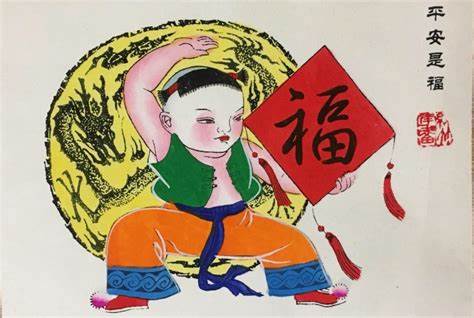 平安是福
福